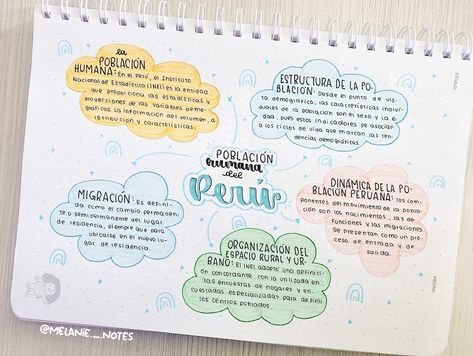 la
POBLACIÓN
HUMANA: En el Perú, el Instituto
Nacional de Estadística (INEI) es la entidad
que proporciona las estadísticas y
proyecciones de las variables demo-
gráficas. La información del volumen, d
istribución y características.
ESTRUCTURA DE LA PO-
BLACIÓN: Desde el punto de vis-
ta demográfico, las características indivi-
duales de la población son el sexo y la e-
dad, pues estos indicadores se asocian
a los ciclos de vida que marcan las ten-
dencias demográficas.
POBLACIÓN
humana
del
Perú
MIGRACIÓN: Es defini-
da como el cambio permanen-
te o semipermanente del lugar
de residencia, siempre que para
ubicarse en el nuevo lu-
gar de residencia.
DINÁMICA DE LA PO-
BLACIÓN PERUANA: los com-
ponentes del movimiento de la pobla-
ción son los nacimientos, las de-
funciones y las migraciones.
Se presentan como un pro-
ceso de entrada y de
salida.
ORGANIZACIÓN DEL
ESPACIO RURAL Y UR-
BANO: El INEI adoptó una definici-
ón concordante con la utilizada en
las encuestas de hogares y en-
cuestadas especializadas para definir
los centros poblados.
TÍTULO:
ESPECIAL
@MELANIE._.NOTES